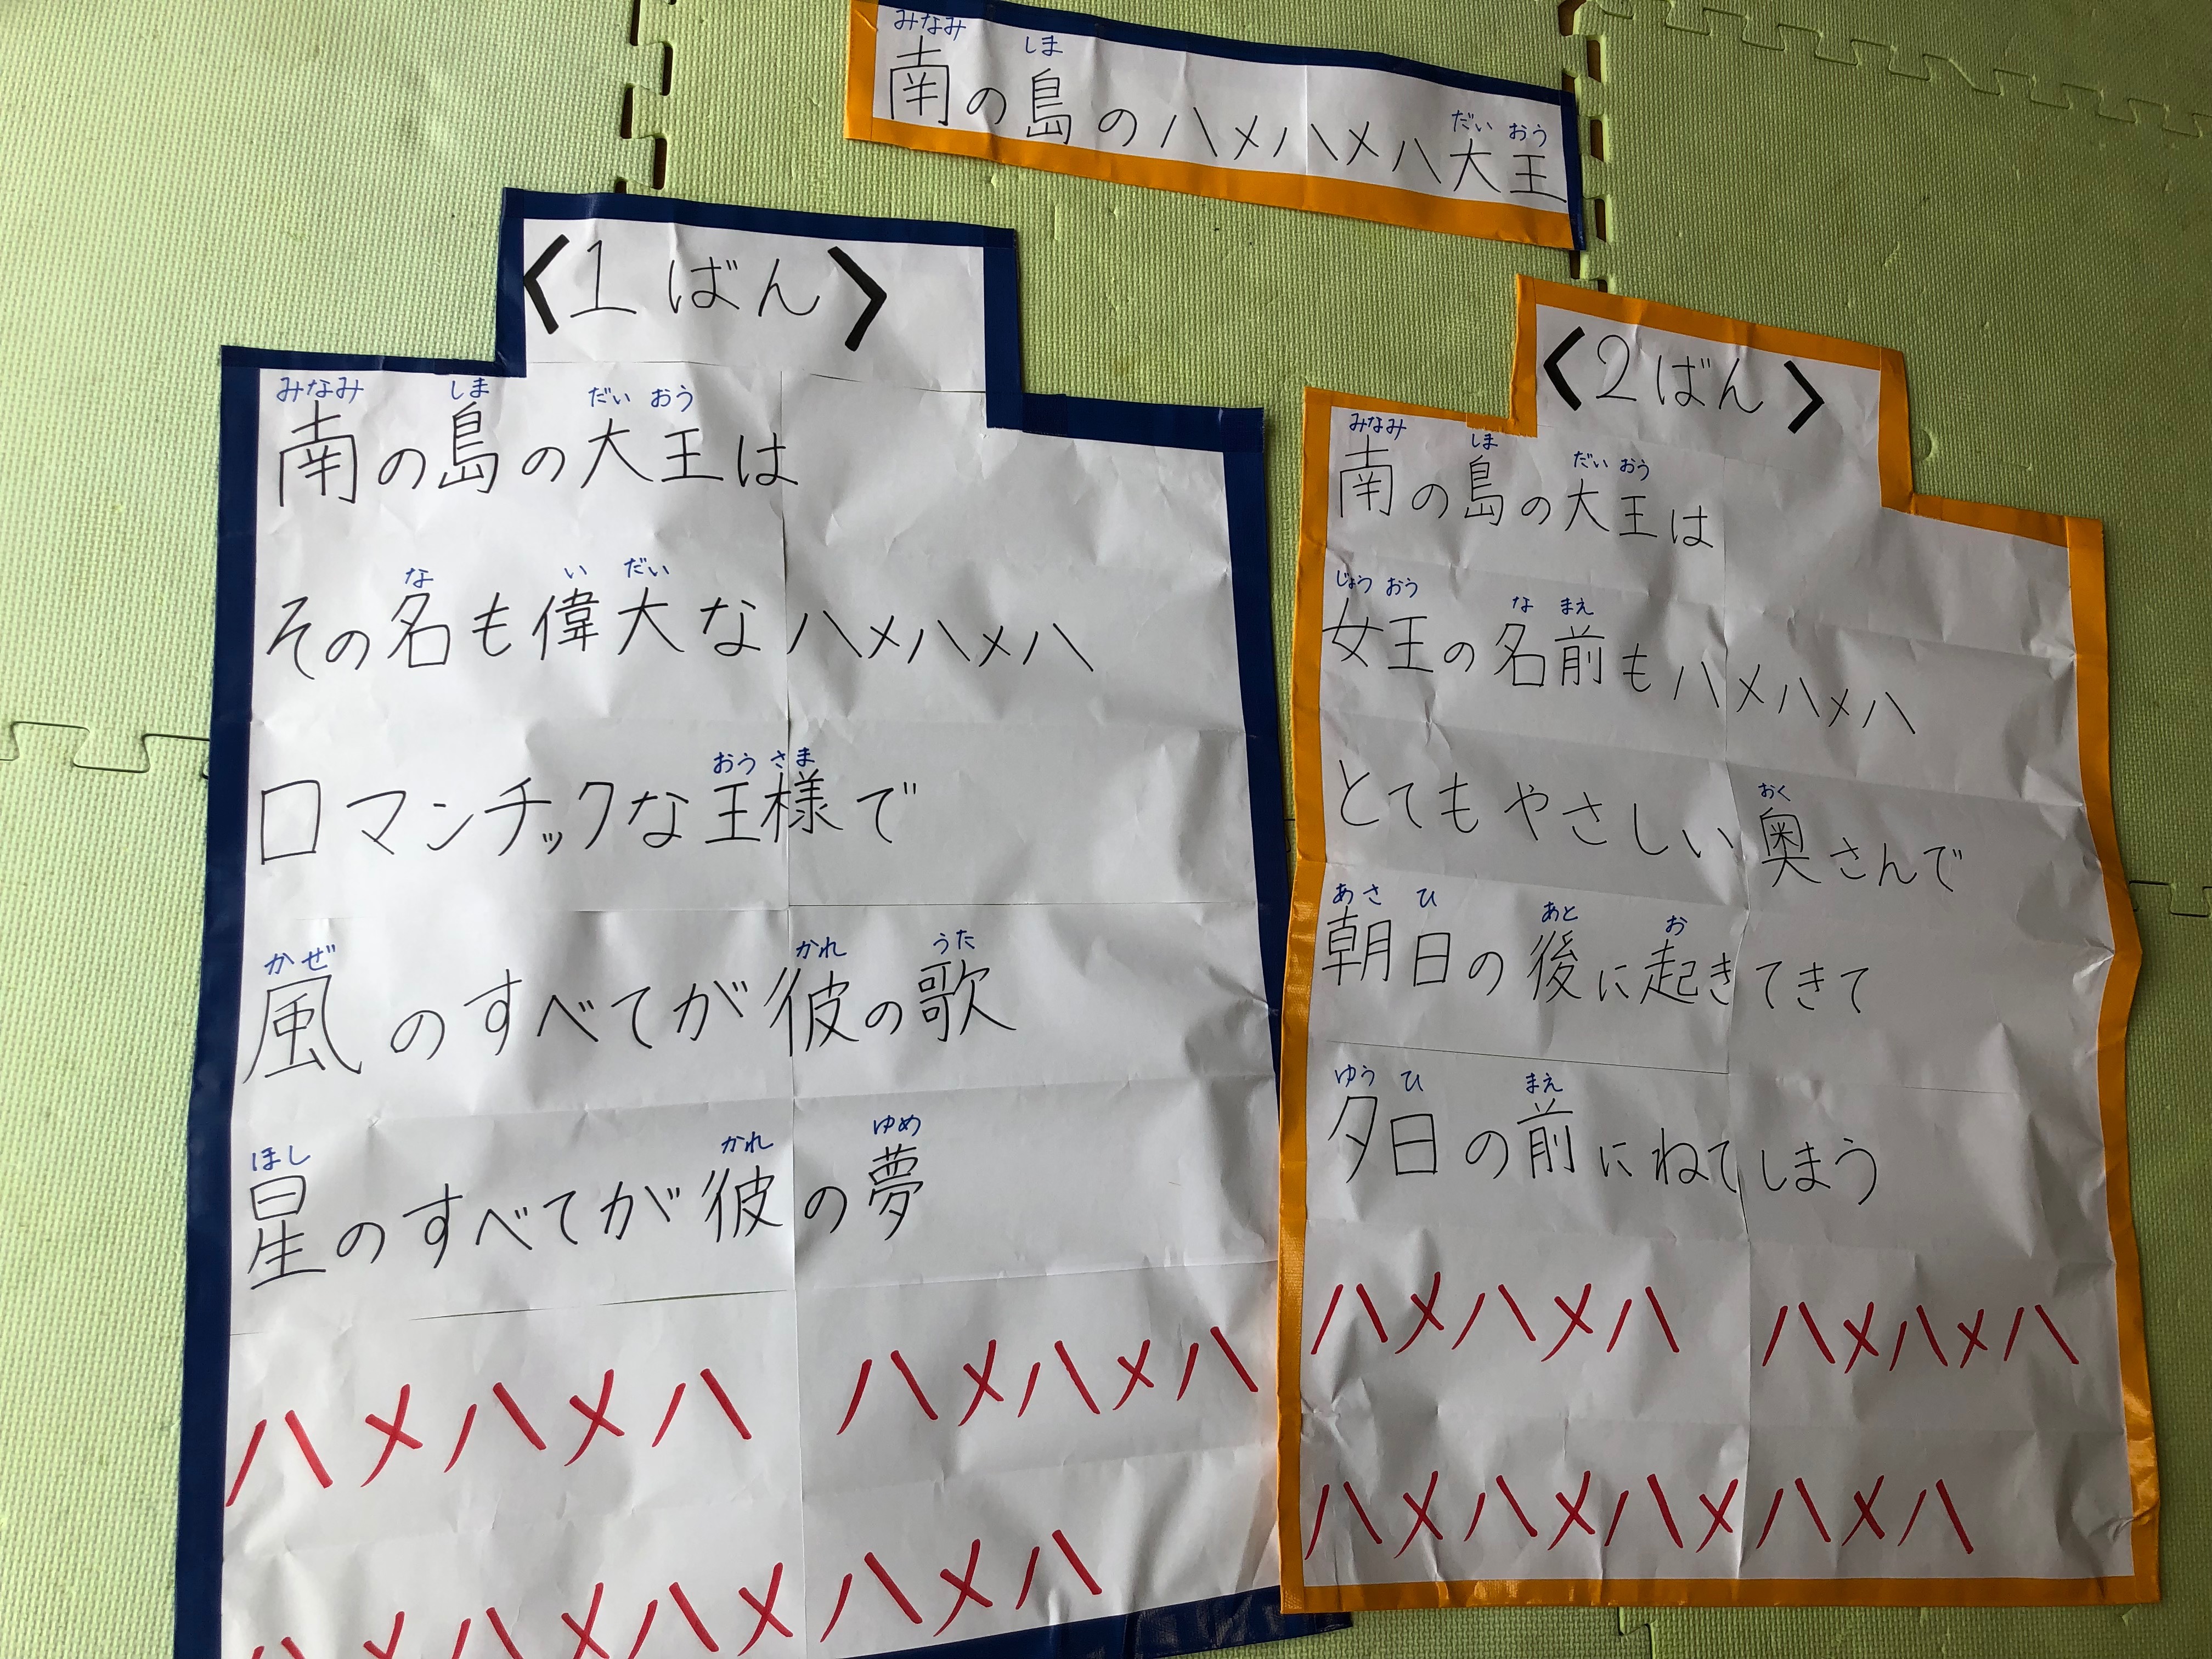 みなみ しま だい おう
南の島のハメハメハ大王
〈1ばん〉
みなみ しま だい おう
南の島の大王は
な い だい
その名も偉大なハメハメハ
おう さま
ロマンチックな王様で
かぜ かれ うた
風のすべてが彼の歌
ほし かれ ゆめ
星のすべてが彼の夢
ハメハメハ ハメハメハ
ハメハメハメハメハ
〈2ばん〉
みなみ しま だい おう
南の島の大王は
じょう おう な まえ
女王の名前もハメハメハ
おく
とてもやさしい奥さんで
あさ ひ あと お
朝日の後に起きてきて
ゆう ひ まえ
夕日の前にねてしまう
ハメハメハ ハメハメハ
ハメハメハメハメハ